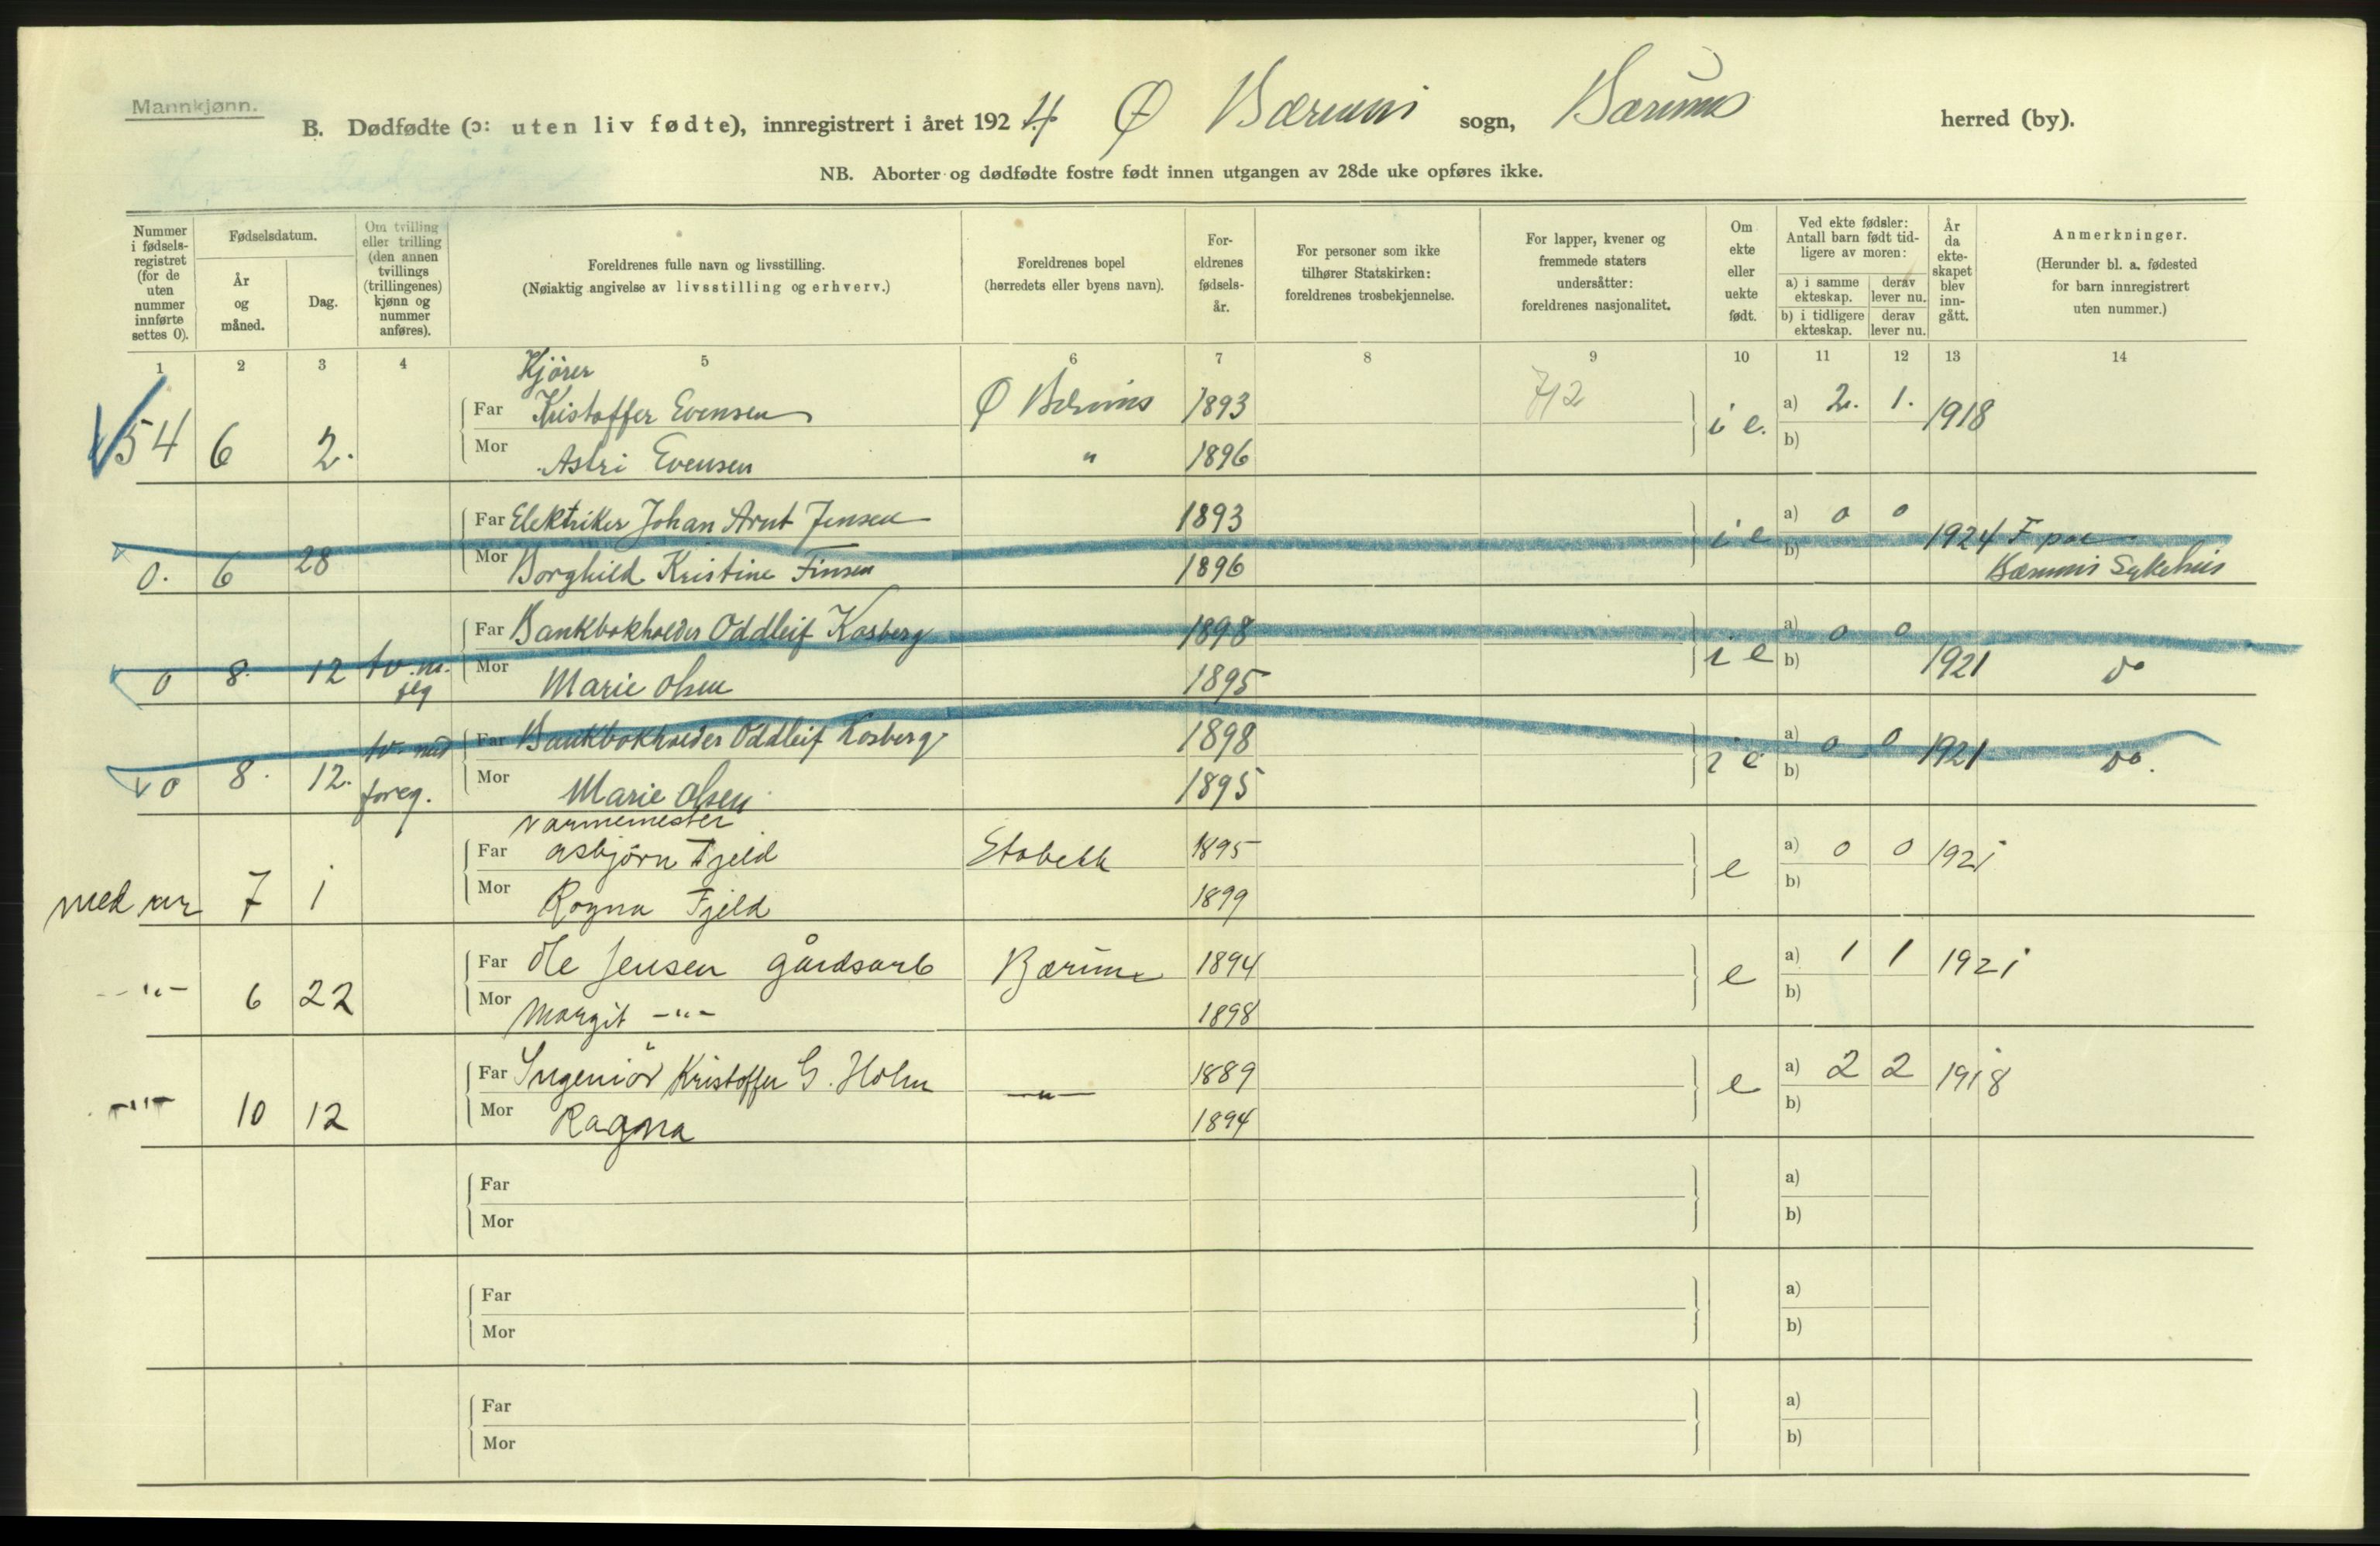 Mannkjønn.
B. Dødfødte (ɔ: uten liv fødte), innregistrert i året 1924 Ø Bærums sogn, Bærums herred (by).
NB. Aborter og dødfødte fostre født innen utgangen av 28de uke opføres ikke.
Nummer i fødsels-registret (for de uten nummer innførte settes 0).
Fødselsdatum.
År og måned.
Dag.
Om tvilling eller trilling (den annen tvillings (trillingenes) kjønn og nummer anføres).
Foreldrenes fulle navn og livsstilling.
(Nøiaktig angivelse av livsstilling og erhverv.)
Foreldrenes bopel
(herredets eller byens navn).
For-eldrenes fødsels-år.
For personer som ikke tilhører Statskirken: foreldrenes trosbekjennelse.
For lapper, kvener og fremmede staters undersåtter: foreldrenes nasjonalitet.
Om ekte eller uekte født.
Ved ekte fødsler: Antall barn født tid-ligere av moren:
a) i samme ekteskap. derav lever nu.
b) i tidligere ekteskap. derav lever nu.
År da ekte-skapet blev inn-gått.
Anmerkninger.
(Herunder bl. a. fødested for barn innregistrert uten nummer.)
1 2 3 4 5 6 7 8 9 10 11 12 13 14
Kjører
54 6 2. Far Kristoffer Evensen Ø Bærums 1893 712 i e. a) 2. 1. 1918
Mor Astri Evensen " 1896 b)
Far Elektriker Johan Arnt Jensen 1893 i e a) 0 0 1924 F paa
0. 6 28 Mor Borghild Kristine Finsen 1896 b) Bærums Sykehus
Far Bankbokholder Oddleif Kosberg 1898 i e a) 0 0
0 8. 12 tv. m. Mor Marie Olsen 1895 b) 1921 do
flg
tv. med Far Bankbokholder Oddleif Kosberg 1898 i e a) 0 0 1921 do.
0 8. 12. foreg. Mor Marie Olsen 1895 b)
Varmemester
Far Asbjørn Fjeld Stabekk 1895 e a) 0 0 1921
med nr 7 1 Mor Ragna Fjeld 1899 b)
Far Ole Jensen gårdsarb Bærum 1894 e a) 1 1 1921
-"- 6 22 Mor Margit -"- 1898 b)
Far Ingeniør Kristoffer G. Holm -"- 1889 e a) 2 2 1918
-"- 10 12 Mor Ragna 1894 b)
Far a)
Mor b)
Far a)
Mor b)
Far a)
Mor b)